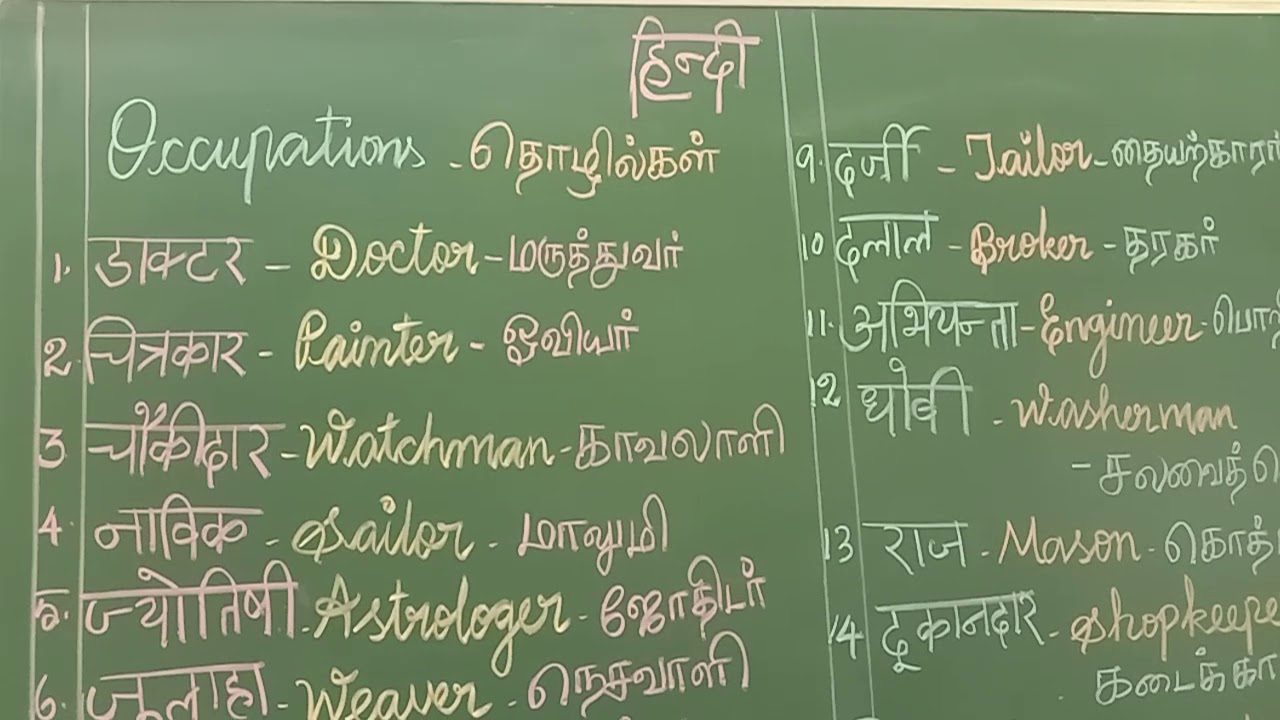 हिन्दी
Occupations - தொழில்கள்
1. डाक्टर - Doctor - மருத்துவர்
2. चित्रकार - Painter - ஓவியர்
3 चौकीदार - Watchman - காவலாளி
4. नाविक - Sailor - மாலுமி
5. ज्योतिषी - Astrologer - ஜோதிடர்
6. जूलाहा - Weaver - நெசவாளி
9. दर्जी - Tailor - தையற்காரர்
10 दलाल - Broker - தரகர்
11. अभियन्ता - Engineer - பொறி
12 धोबी - Washerman
- சலவைத்
13 राज - Mason - கொத்
14 दूकानदार - Shopkeepe
கடைக்கா